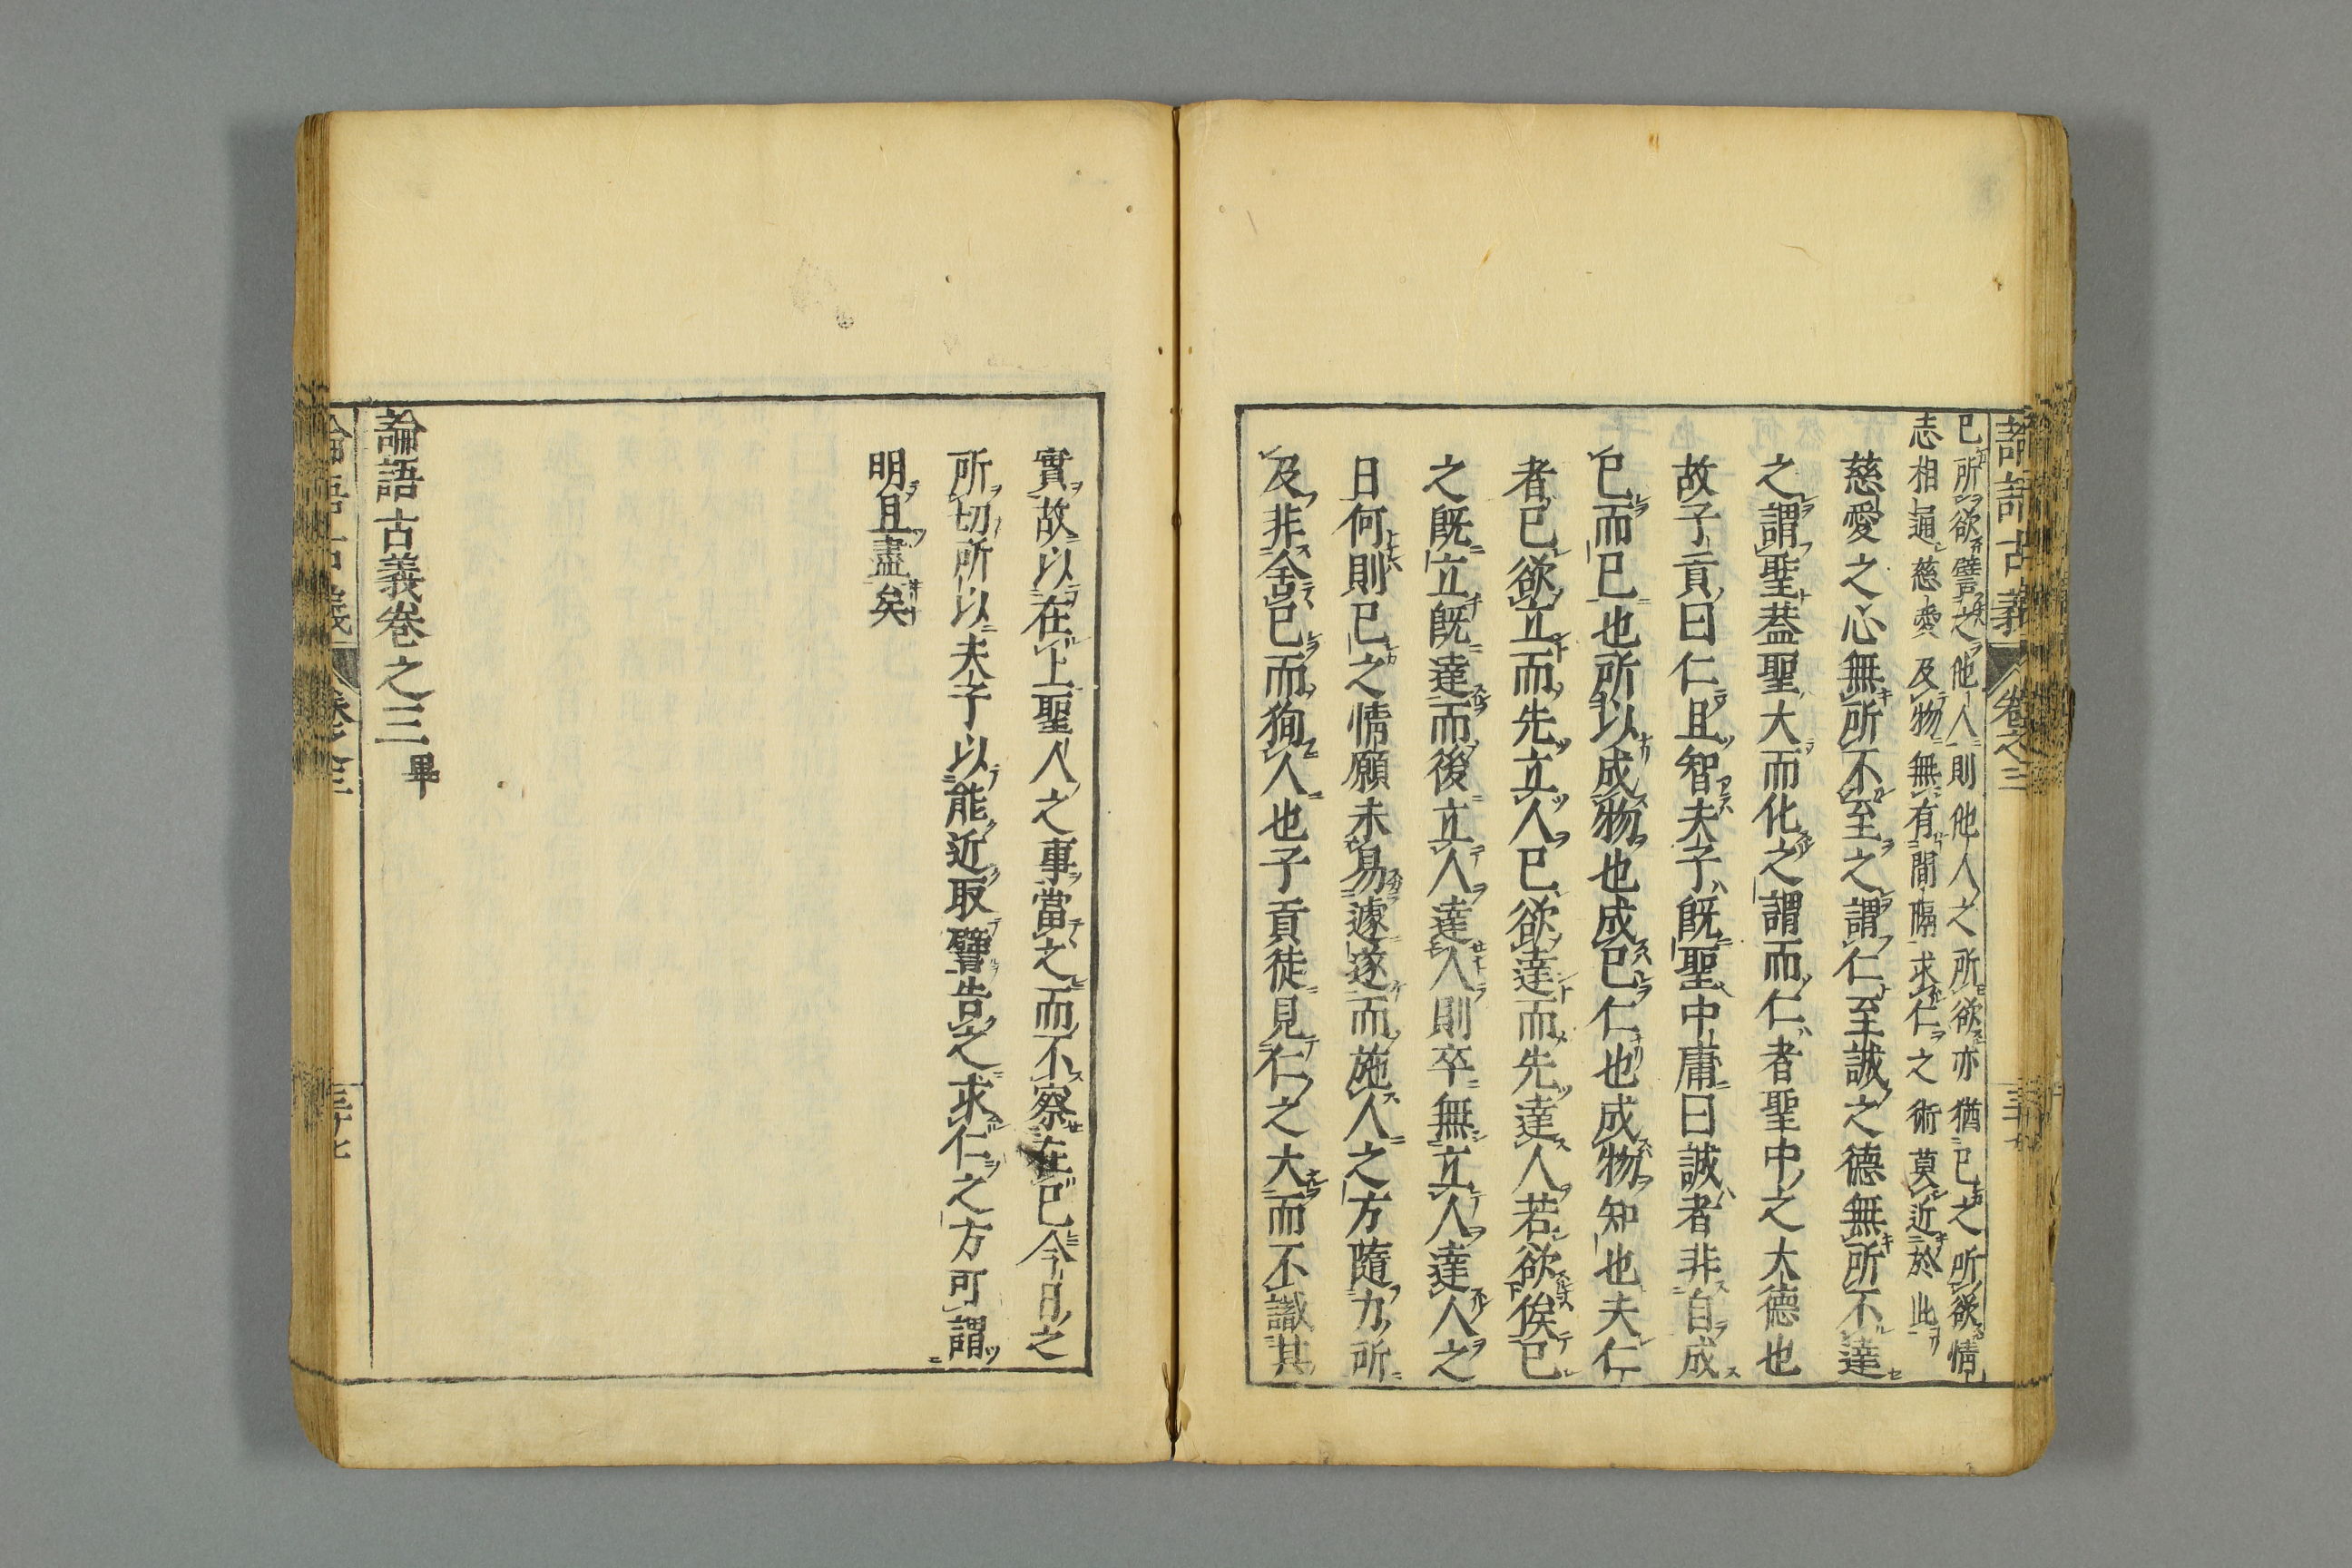 己所欲譬之他人則他人之所欲亦猶己之所欲情
志相通慈愛及物無有間隔求仁之術莫近於此
慈愛之心無所不至之謂仁至誠之德無所不達
之謂聖蓋聖大而化之謂而仁者聖中之大德也
故子貢曰仁且智夫子既聖中庸曰誠者非自成
己而已也所以成物也成己仁也成物知也夫仁
者己欲立而先立人己欲達而先達人若欲俟己
之既立既達而後立人達人則卒無立人達人之
日何則己之情願未易遽遂而施人之方隨力所
及非舍己而狥人也子貢徒見仁之大而不識其
論語古義 卷之三
實故以在上聖人之事當之而不察在己今日之
所切所以夫子以能近取譬告之求仁之方可謂
明且盡矣
論語古義卷之三畢
論語古義 卷之三 三十七